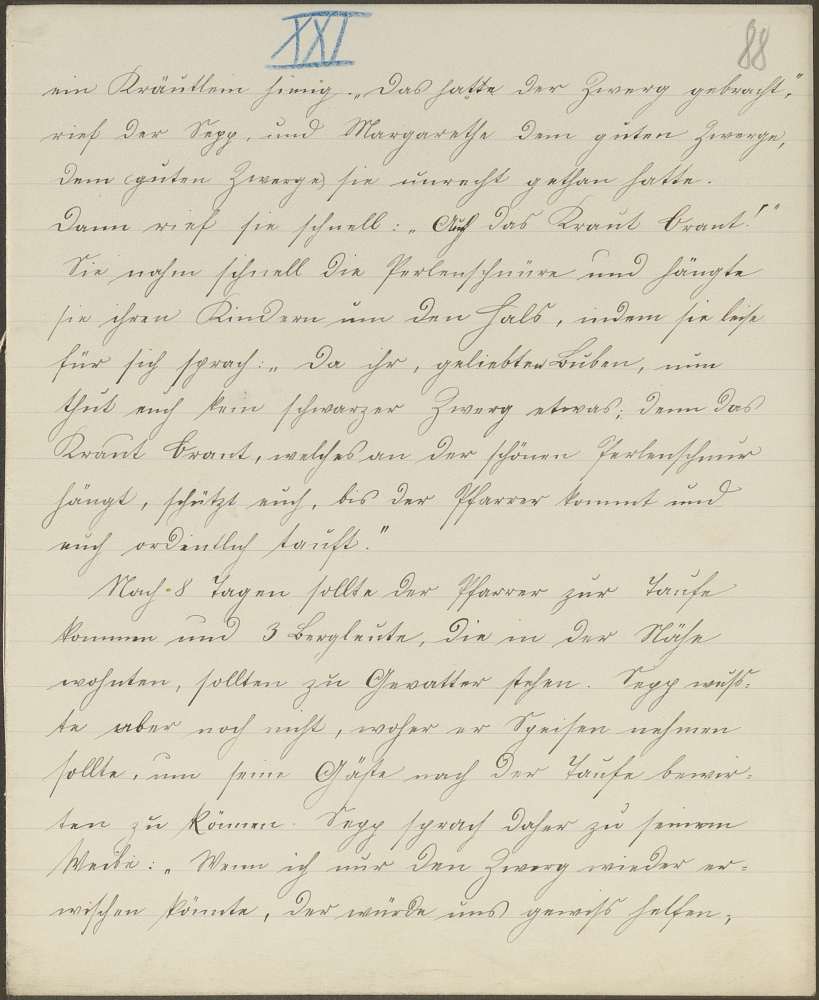 XXI
88
ein Kräutlein hing. „Das hatte der Zwerg gebracht,"
rief der Sepp, und Margarethe dem guten Zwerge,
dem (guten Zwerge) sie unrecht gethan hatte.
Dann rief sie schnell: „Auf das Kraut Orant!"
Sie nahm schnell die Perlenschnüre und hängte
sie ihren Kindern um den Hals, indem sie leise
für sich sprach: „Da ihr, geliebten Buben, nun
thut euch kein schwarzer Zwerg etwas; denn das
Kraut Orant, welches an der schönen Perlenschnur
hängt, schützt euch, bis der Pfarrer kommt und
euch ordentlich tauft."
Nach 8 Tagen sollte der Pfarrer zur Taufe
kommen und 3 Bergleute, die in der Nähe
wohnten, sollten zu Gevatter stehen. Sepp wuss-
te aber noch nicht, woher er Speisen nehmen
sollte, um seine Gäste nach der Taufe bewir-
ten zu können. Sepp sprach daher zu seinem
Weibe: „Wenn ich nur den Zwerg wieder er-
wischen könnte, der würde uns gewiss helfen;